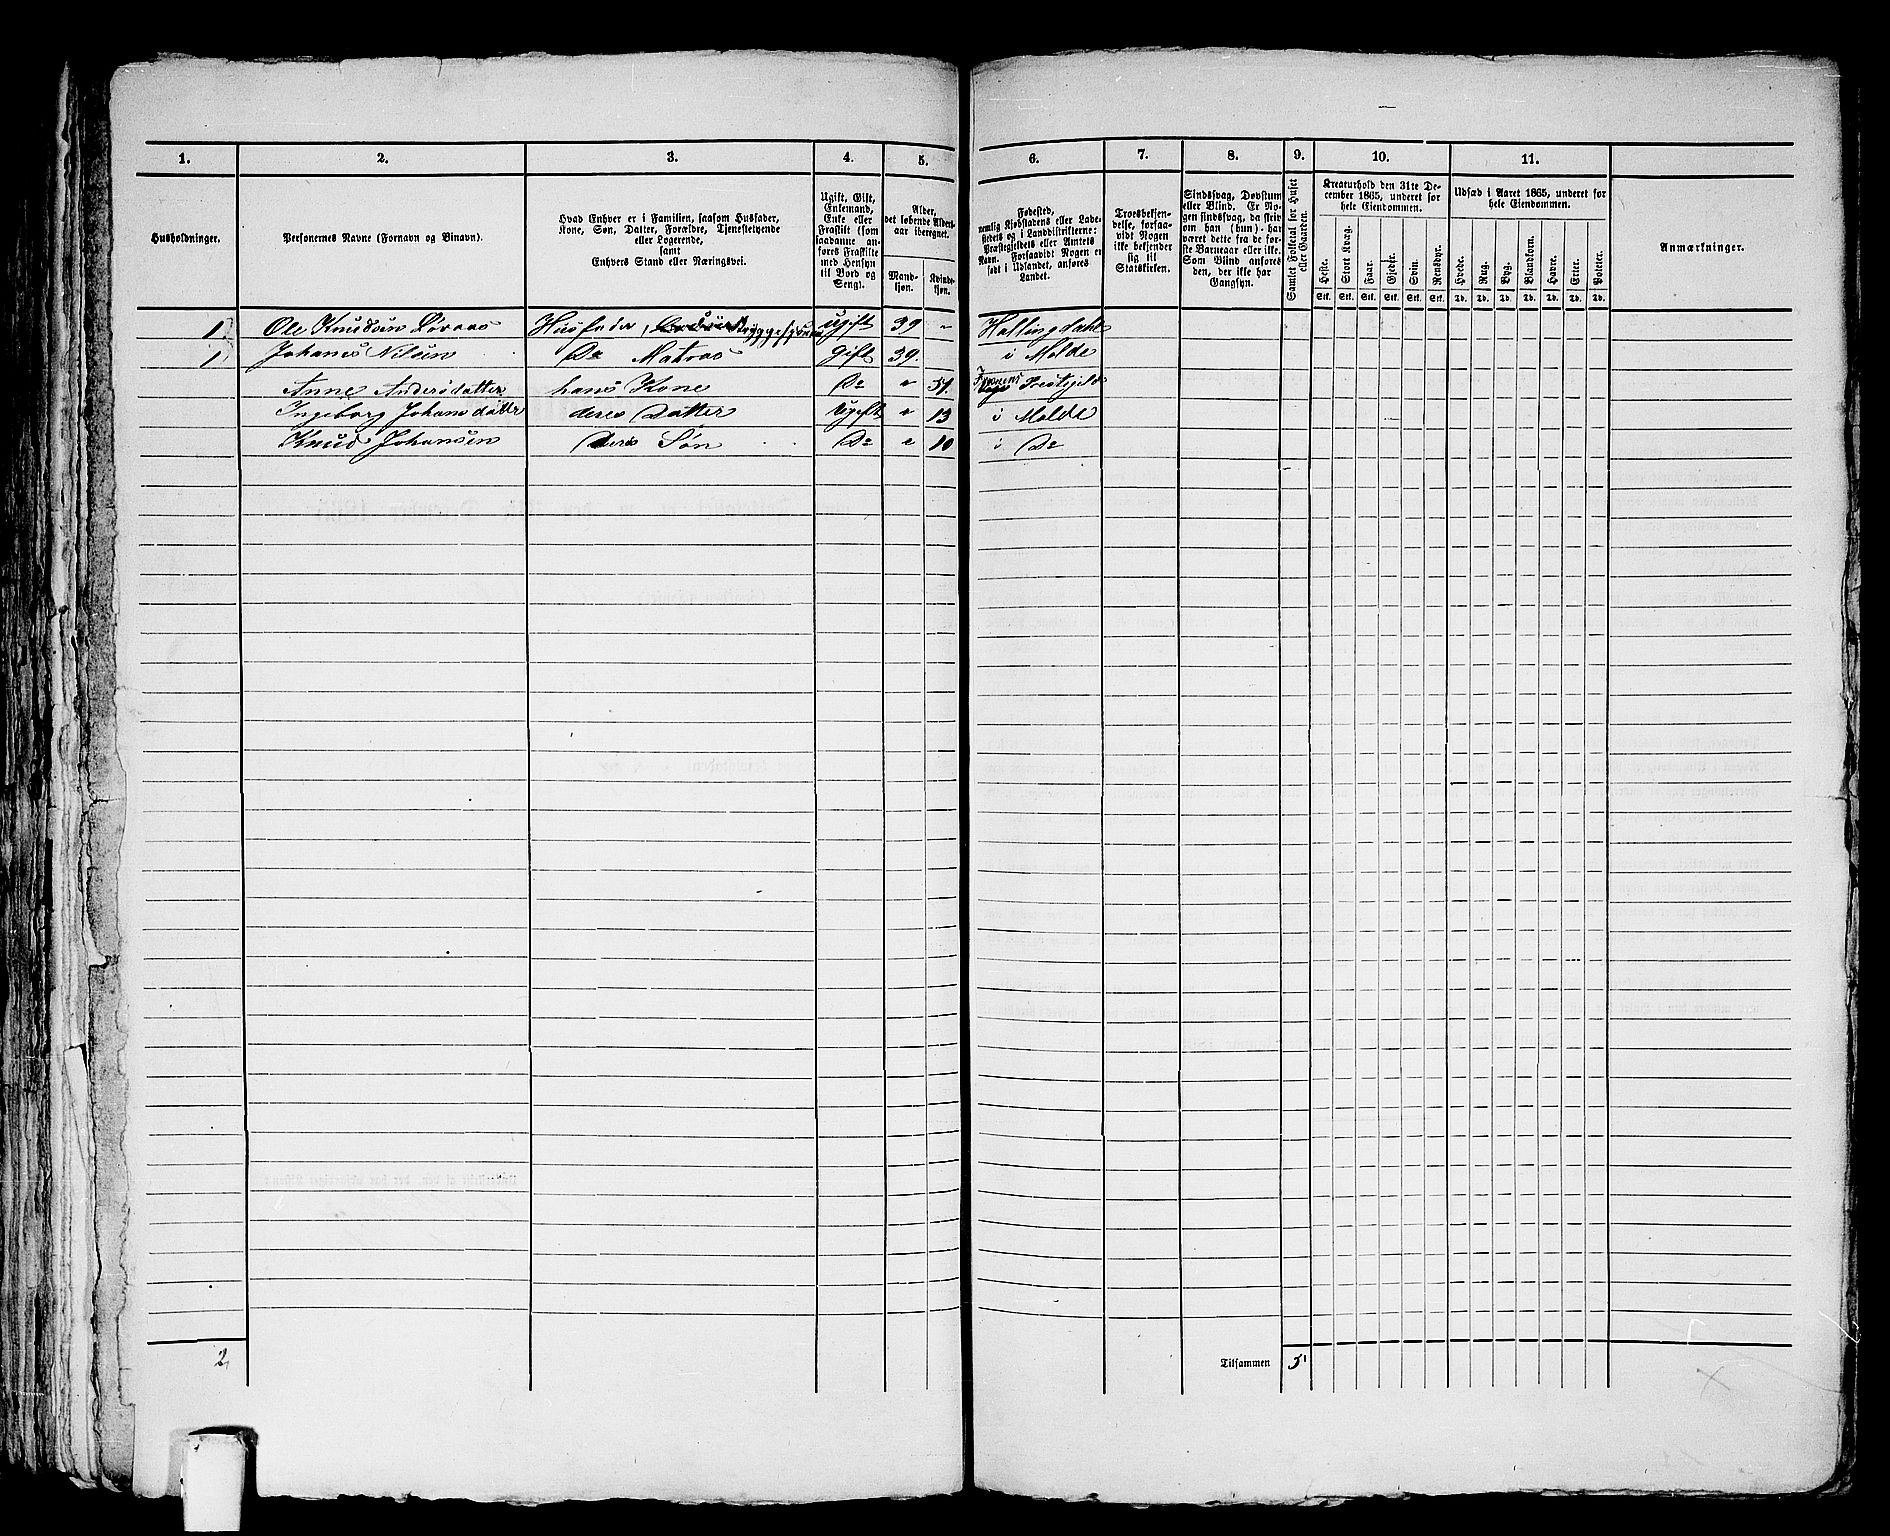 1. 2. 3. 4. 5. 6. 7. 8. 9. 10. 11.
Husholdninger.
Personernes Navne (Fornavn og Binavn).
Hvad Enhver er i Familien, saasom Husfader,
Kone, Søn, Datter, Forældre, Tjenestetyende
eller Logerende,
samt
Enhvers Stand eller Næringsvei.
Ugift, Gift,
Enkemand,
Enke eller
Fraskilt (som
saadanne an-
føres Fraskilte
med Hensyn
til Bord og
Seng).
Alder,
det løbende Alders-
aar iberegnet.
Mand-
kjøn.
Kvinde-
kjøn.
Fødested,
nemlig Kjøbstadens eller Lade-
stedets og i Landdistrikterne:
Præstegjeldets eller Amtets
Navn. Forsaavidt Nogen er
født i Udlandet, anføres
Landet.
Troesbekjen-
delse, forsaa-
vidt Nogen
ikke bekjender
sig til
Statskirken.
Sindssvag, Døvstum
eller Blind. Er No-
gen sindssvag, da skriv
om han (hun) har
været dette fra de før-
ste Barneaar eller ikke.
Som Blind anføres
den, der ikke har
Gangsyn.
Samlet Folketal for Huset
eller Gaarden.
Kreaturhold den 31te De-
cember 1865, underet for
hele Eiendommen.
Heste. Stort Kvæg. Faar. Gjeder. Svin. Rensdyr.
Stk. Stk. Stk. Stk. Stk. Stk.
Udsæd i Aaret 1865, underet for
hele Eiendommen.
Hvede. Rug. Byg. Blandkorn. Havre. Erter. Poteter.
Td. Td. Td. Td. Td. Td. Td.
Anmærkninger.
1 Ole Knudsen Husfader, Ugift 39 " Hallingdahl
1 Johanes Nilsen Do Matros Gift 39. i Molde
Anne Andersdatter hans Kone Do " 51.
Ingeborg Johansdatter deres Datter Ugift " 13 i Molde
Knud Johansen Deres Søn Do " 10 i Do
2
Tilsammen 5